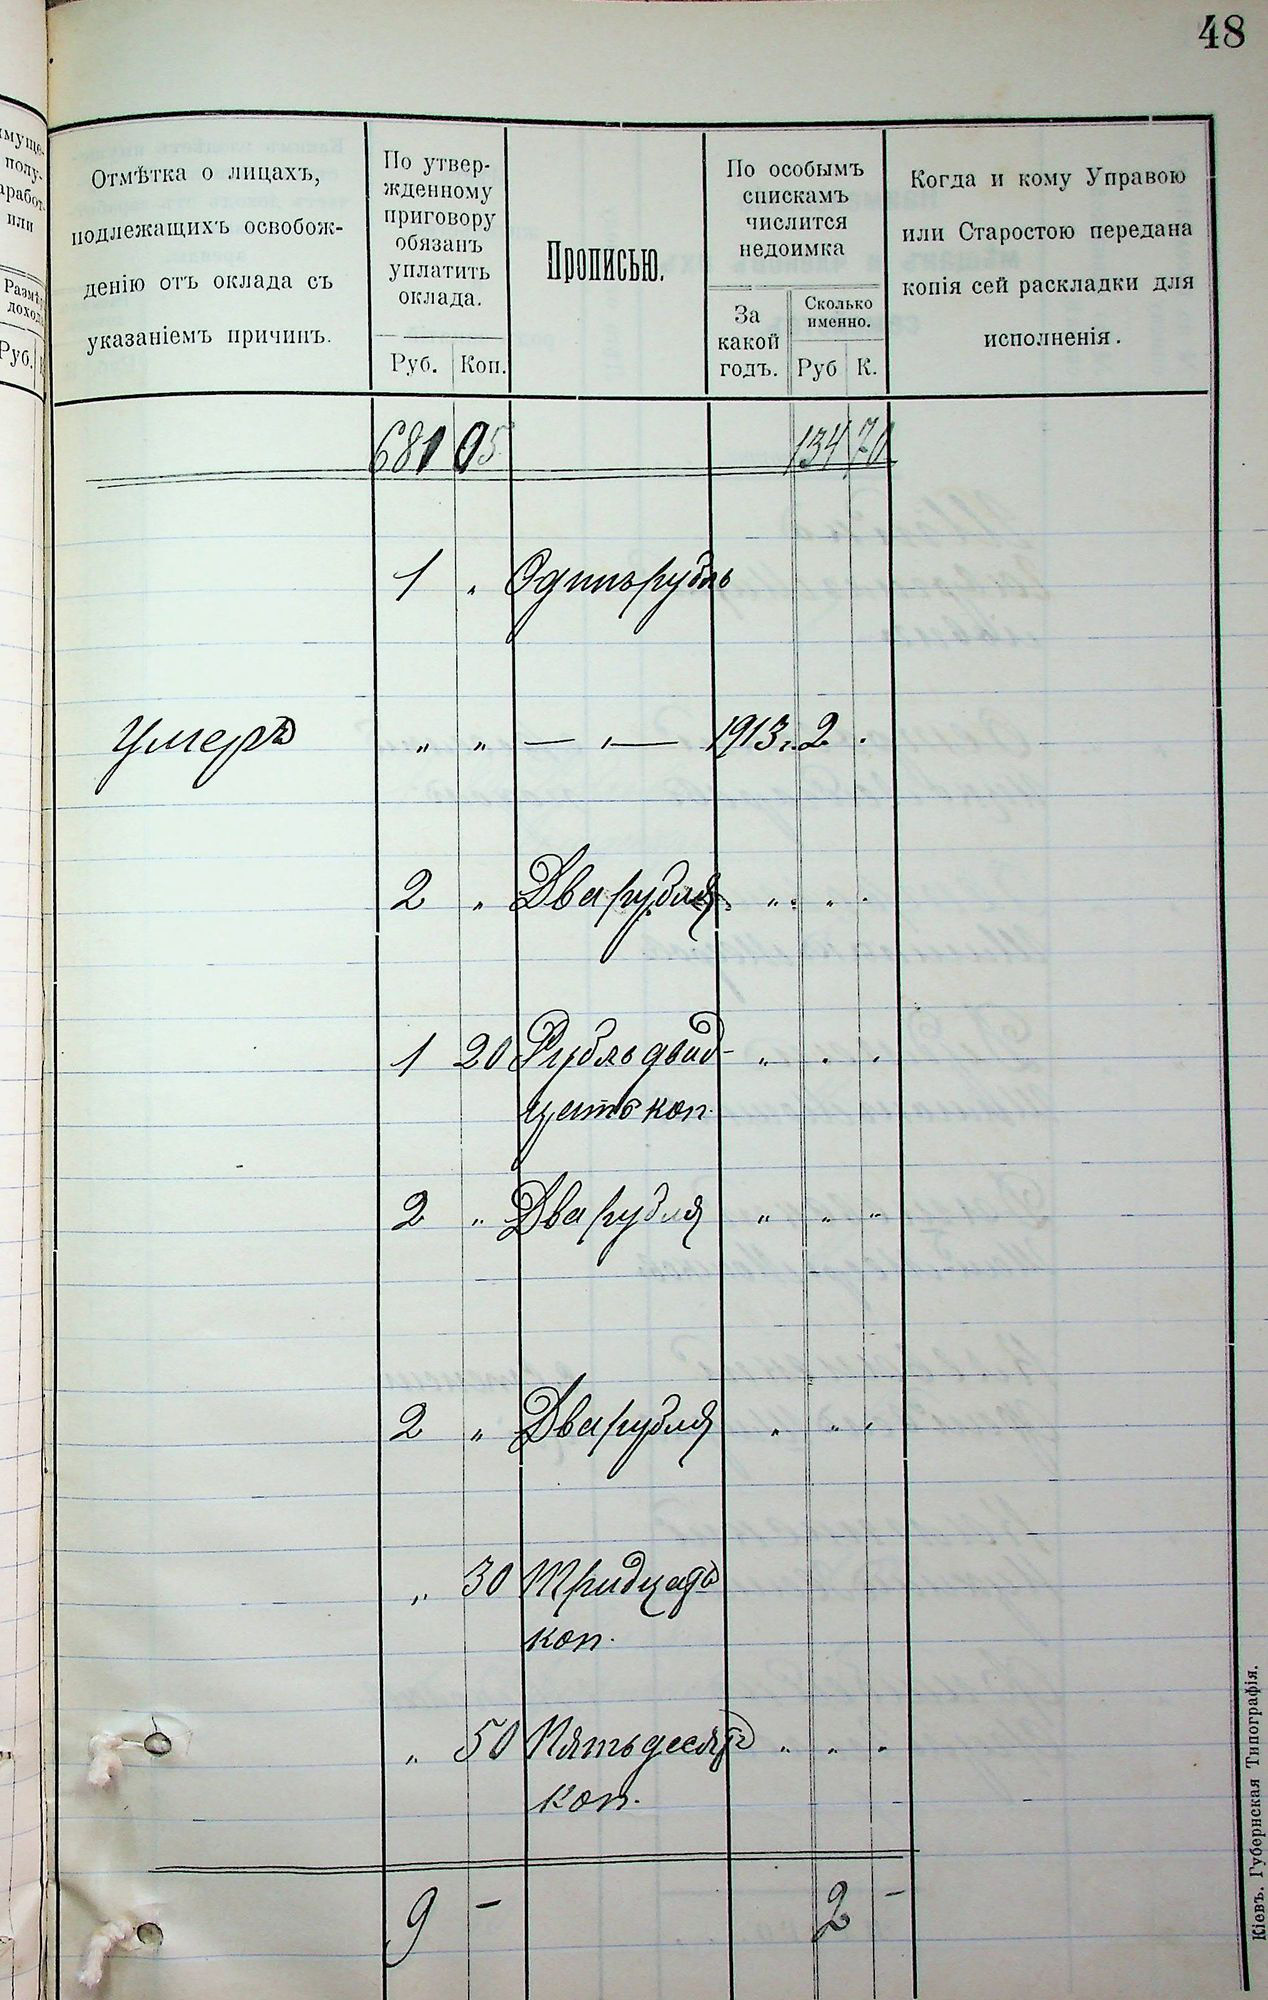 48
муще-
полу-
аработ-
или
Размѣ
доход
Руб.
Отмѣтка о лицахъ,
подлежащихъ освобож-
денію отъ оклада съ
указаніемъ причинъ.
По утвер-
жденному
приговору
обязанъ
уплатить
оклада.
Руб. Коп.
Прописью.
По особымъ
спискамъ
числится
недоимка
За
какой
годъ.
Сколько
именно.
Руб К.
Когда и кому Управою
или Старостою передана
копія сей раскладки для
исполненія.
681 05 134 70
1 „ Одинъ рубль
Умеръ „ „ — „ — 1913 г. 2 .
2 „ Два рубля „ „ .
1 20 Рубль двад- „ . .
цать коп.
2 „ Два рубля „ „ „
2 „ Два рубля „ „ „
„ 30 Тридцать
коп.
„ 50 Пятьдесятъ „ „ „
коп.
9 – 2 –
Кіевъ. Губернская Типографія.